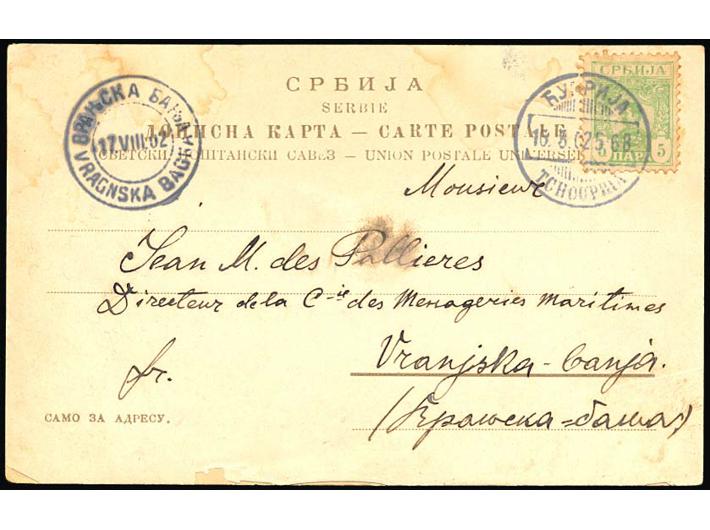 СРБИЈА
SERBIE
ДОПИСНА КАРТА — CARTE POSTALE
СВЕТСКИ ПОШТАНСКИ САВЕЗ — UNION POSTALE UNIVERSE
ВРАЊСКА БАЊА
17.VIII.02
VRAGNSKA BAGNA
СРБИЈА
5 ПАРА 5
ЋУПРИЈА
TCHOUPRIA
Monsieur
Jean M. des Pallieres
Directeur de la Cie des Menageries Maritimes
fr.
Vranjska-banja.
(Врањска-бања)
САМО ЗА АДРЕСУ.